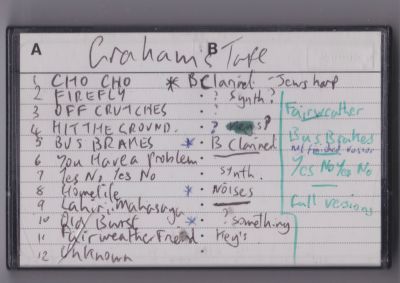 A Graham's Tape B
1 CHO CHO * B Clarinet - Jews harp
2 FIREFLY · ? Synth?
3 OFF CRUTCHES ·
4 HIT THE GROUND. ?
5 BUS BRAKES * B Clarinet
6 You Have a problem ·
7 Yes No, Yes No synth.
8 Homelife * Noises
9 Lahiri, Mahasaya
10 Old Burst * ? something
11 Fairweather Friend Key's
12 Unknown
Fairweather
Bus Brakes
not finished
Yes No Yes No
full versions